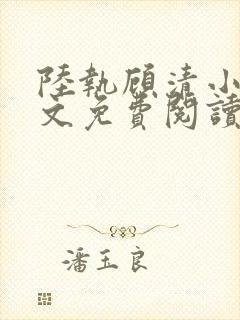 陸執顧清小
文免費閱讀
潘玉良